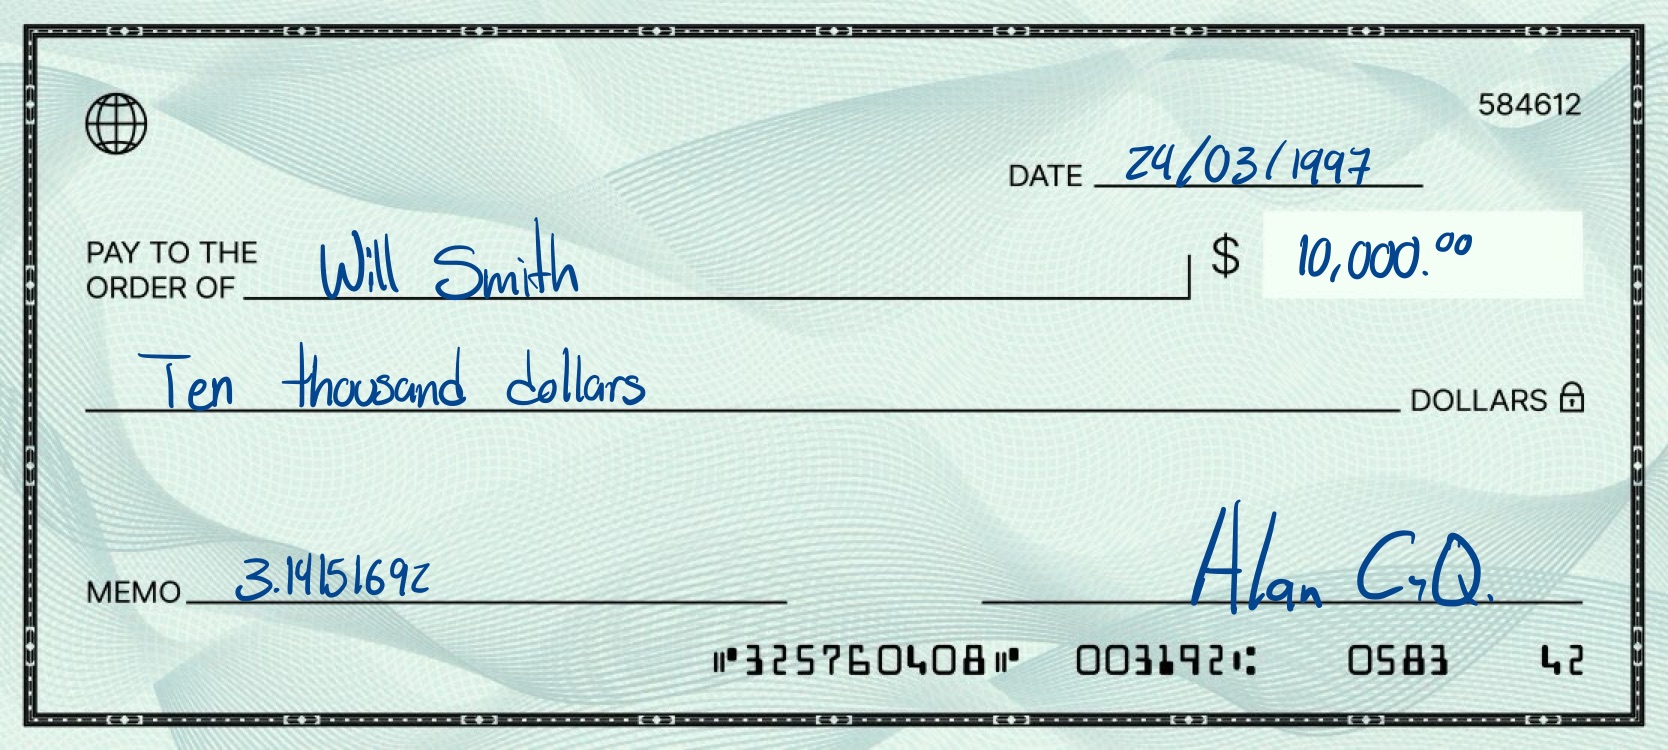 584612
DATE 24/03/1997
PAY TO THE
ORDER OF Will Smith $ 10,000.00
Ten thousand dollars DOLLARS
MEMO 3.14151692 Alan GQ.
⑈325760408⑈ 003192⑆ 0583 42